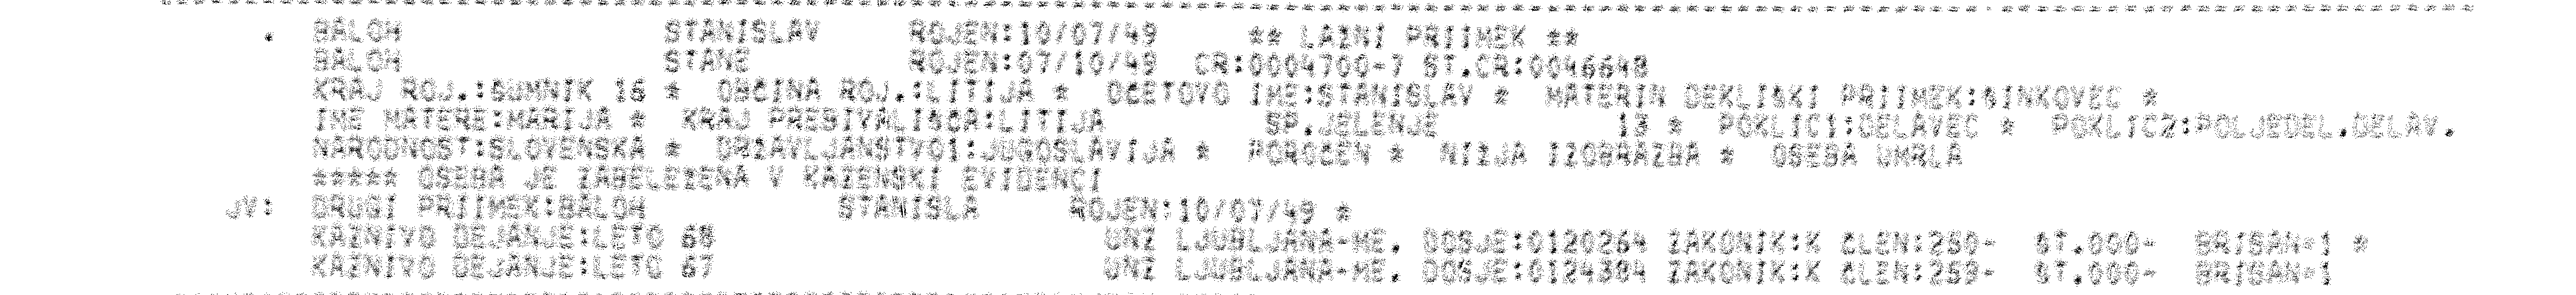 . BALOH STANISLAV ROJEN:10/07/49 ** LAZNI PRIIMEK **
BALOH STANE ROJEN:07/10/49 CR:0004700-7 ST.CR:0046648
KRAJ ROJ.:SUMNIK 16 * OBČINA ROJ.:LITIJA * OČETOVO IME:STANISLAV * MATERIN DEKLIŠKI PRIIMEK:SINKOVEC *
IME MATERE:MARIJA * KRAJ PREBIVALIŠČA:LITIJA SP.JELENJE 13 * POKLIC1:DELAVEC * POKLIC2:POLJEDEL.DELAV.
NARODNOST:SLOVENSKA * DRZAVLJANSTVO1:JUGOSLAVIJA * POROČEN * NIZJA IZOBRAZBA * OSEBA UMRLA
***** OSEBA JE ZABELEZENA V KAZENSKI EVIDENCI
JV: DRUGI PRIIMEK:BALOH STANISLA ROJEN:10/07/49 *
KAZNIVO DEJANJE:LETO 68 UNZ LJUBLJANA-ME, DOSJE:0120264 ZAKONIK:K ČLEN:250- ŠT.000- BRISAN-1 *
KAZNIVO DEJANJE:LETO 67 UNZ LJUBLJANA-ME, DOSJE:0124384 ZAKONIK:K ČLEN:259- ŠT.000- BRISAN-1